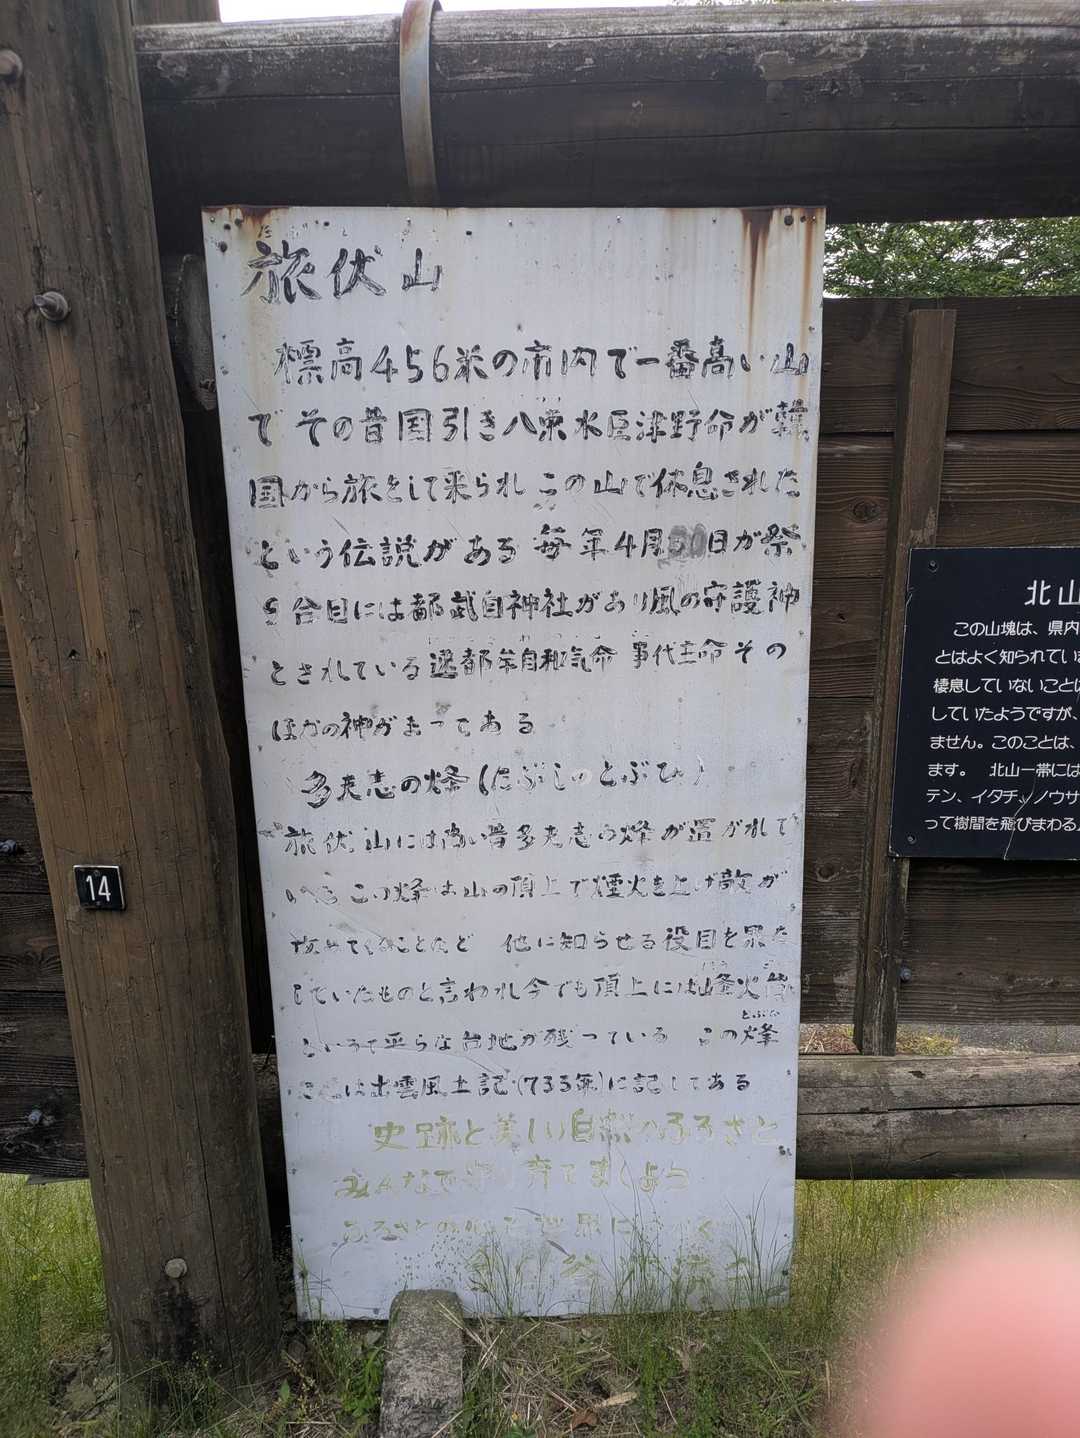 旅伏山
標高456米の市内で一番高い山
で その昔国引き八束水臣津野命が韓
国から旅をして来られ この山で休息された
という伝説がある 毎年4月 日が祭
9合目には都武自神社があり風の守護神
とされている 都牟自和気命 事代主命その
ほかの神がまつてある
多夫志の烽(たぶしのとぶひ)
旅伏山には 昔多夫志の烽が置かれて
いる この烽は山の頂上で煙火を上げ敵が
攻めてくることなど 他に知らせる役目を果た
していたものと言われ今でも頂上には烽火
という平らな台地が残っている この烽
とぶひ
は出雲風土記(733年)に記してある
史跡と美しい自然のふるさと
みんなで守り育てましょう
ふるさとの
14
北山
この山塊は、県内
とはよく知られてい
棲息していないことは
していたようですが、
ません。このことは、
ます。 北山一帯には
テン、イタチ、ノウサ
って樹間を飛びまわる